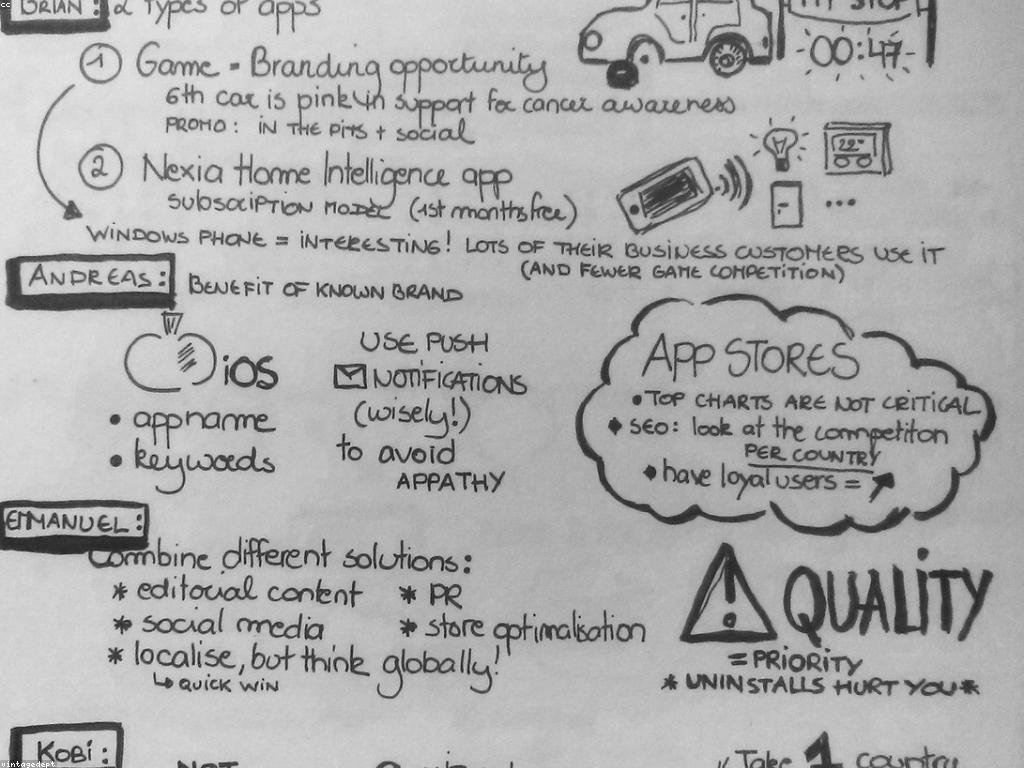 cc
BRIAN: 2 types of apps
PIT STOP
00:47
1 Game = Branding opportunity
6th car is pink in support for cancer awareness
PROMO: IN THE PITS + social
2 Nexia Home Intelligence app
22°
SUBSCRIPTION MODEL (1st months free)
...
WINDOWS PHONE = INTERESTING! LOTS OF THEIR BUSINESS CUSTOMERS USE IT
(AND FEWER GAME COMPETITION)
ANDREAS: BENEFIT OF KNOWN BRAND
iOS
• appname
• keywords
USE PUSH
NOTIFICATIONS
(wisely!)
to avoid
APPATHY
APP STORES
• TOP CHARTS ARE NOT CRITICAL
• SEO: look at the competiton
PER COUNTRY
• have loyal users =
EMMANUEL:
Combine different solutions:
* editorial content * PR
* social media * store optimalisation
* localise, but think globally!
↳ QUICK WIN
! QUALITY
= PRIORITY
* UNINSTALLS HURT YOU *
KOBI:
NOT
Take 1 country
vintagedept